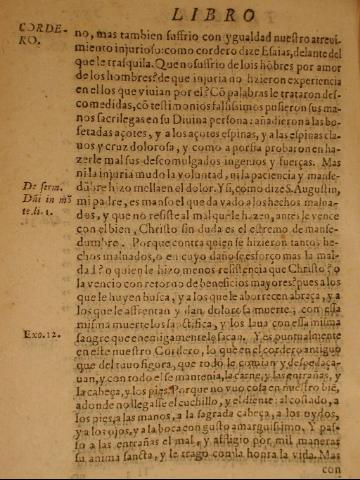 LIBRO
CORDE-
RO.
no, mas tambien suffrio con ygualdad nuestro atreui-
miento injurioso: como cordero dize Esaias, delante del
que le trasquila. Que no suffrio de los hõbres por amor
de los hombres? de que injuria no hizieron experiencia
en ellos que viuian por el? Cõ palabras le trataron des-
comedidas, cõ testimonios falsissimos pusieron sus ma-
nos sacrilegas en su Diuina persona: añadieron a las bo-
fetadas açotes, y a los açotes espinas, y a las espinas cla-
uos y cruz dolorosa, y como a porfia probaron en ha-
zerle mal sus descomulgados ingenios y fuerças. Mas
ni la injuria mudo la voluntad, ni la paciencia y manse-
De serm.
Dñi in mõ
te. li. 1.
dũbre hizo mella en el dolor. Y si, como dize S. Augustin,
mi padre, es manso el que da vado a los hechos malua-
dos, y que no resiste al mal que le hazen, antes le vence
con el bien, Christo sin duda es el estremo de manse-
dumbre. Porque contra quien se hizieron tantos he-
chos maluados, o en cuyo daño se esforço mas la mal-
dad? o quien le hizo menos resistencia que Christo? o
la vencio con retorno de beneficios mayores? pues a los
que le huyen busca, y a los que le aborrecen abraça, y a
los que le affrentan y dan dolorosa muerte, con essa
misma muerte los sanctifica, y los laua con essa misma
Exo. 12.
sangre que enemigamente le sacan. Y es puntualmente
en este nuestro Cordero, lo que en el cordero antiguo
que del tuuo figura, que todo le comian y despedaça-
uan, y con todo el se mantenia, la carne, y las entrañas, y
la cabeça, y los pies. Porque no vuo cosa en nuestro bien
adonde no llegasse el cuchillo, y el diente: al costado, a
los pies, a las manos, a la sagrada cabeça, a los oydos,
y a los ojos, y a la boca con gusto amarguissimo. Y pas-
so a las entrañas el mal, y affligio por mil maneras
su anima sancta, y le trago con la honra la vida. Mas
con